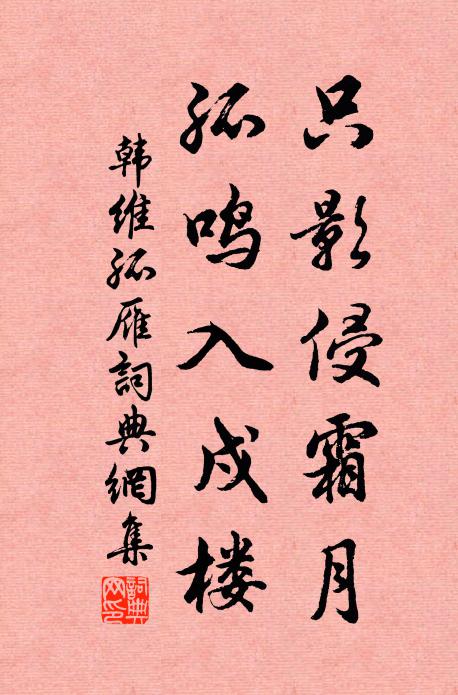 只影侵霜月
孤鸣入戍楼
韩维孤雁詞典網集
詞典网印